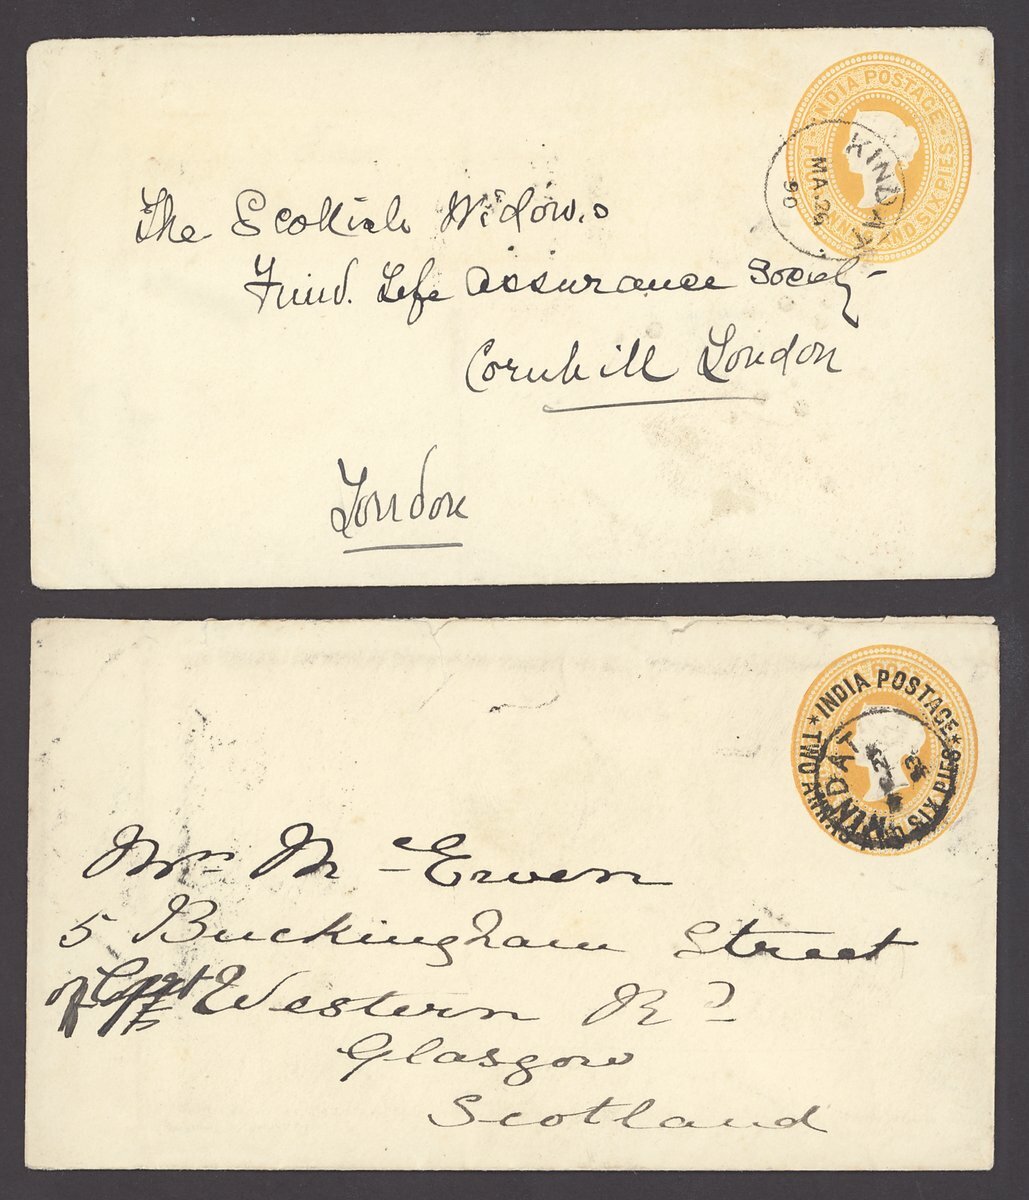 INDIA POSTAGE
ANNAS AND SIX PIES
KINDAT
MA. 26
90
The Scottish Widows
Fund. Life Assurance Society
Cornhill London
London
INDIA POSTAGE
TWO ANNAS AND SIX PIES
KINDAT
Mrs M Ewen
5 Buckingham Street
off Gert Western Rd
Glasgow
Scotland